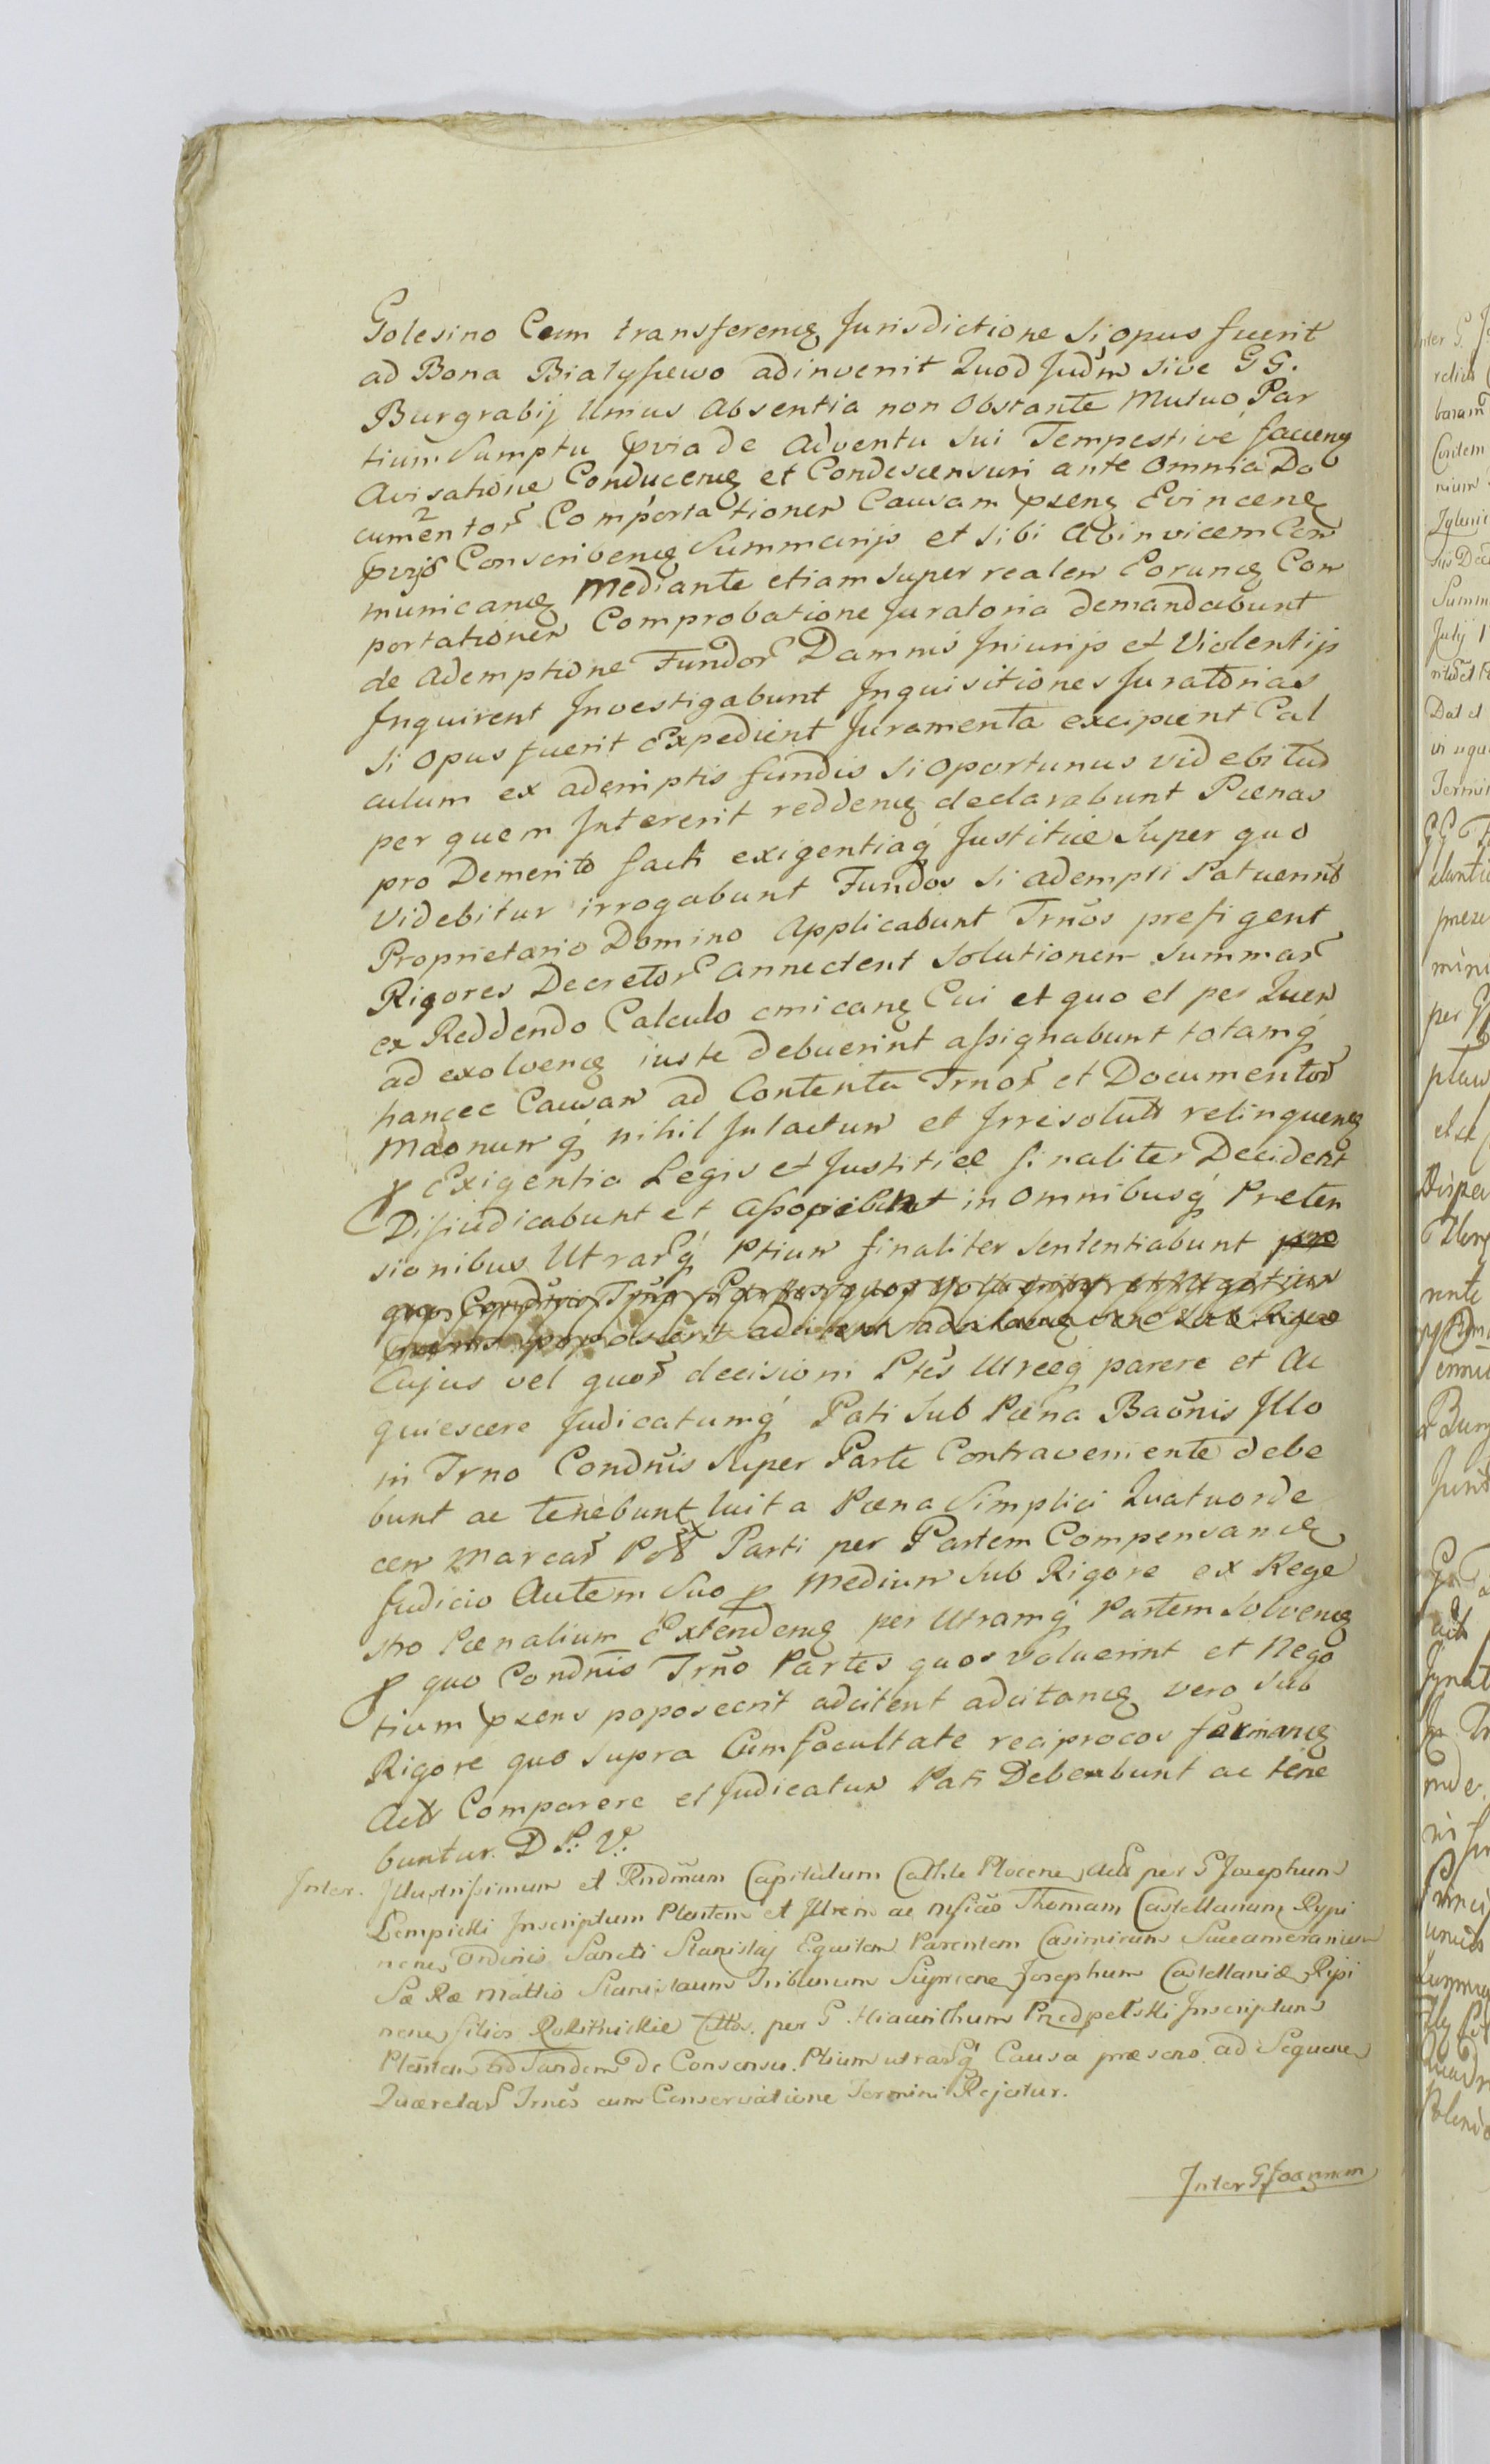 Golesino Cum transferenɖ Jurisdictione Si opus fuerit
ad Bona Bialyszewo adinvenit Quod Judm̃ sive GG.
Burgrabij Unius Absentia non Obstante Mutuo Par
tium Sumptu pvia de Adventu sui Tempestive facienɖ
Avisatione Conducenɖ et Condescensuri ante omnia Do
cumentoꝝ Comportationem Causam psenɖ Evincenɖ
Conscribenɖ Summarijs et sibi Abinvicem Com
municanɖ Mediante etiam super realem Eorunɖ Com
portationem Comprobatione Juratoria demandabunt
de Ademptione Fundoꝝ Damnis Injurijs et Violentijs
Inquirent Investigabunt Inquisitiones Juratorias
Si opus fuerit Expedient Juramenta excipient Cal
culum ex ademptis fundis si oportunus videbitur
per quem Intererit reddenɖ declarabunt Pœnas
pro Demerito facti exigentiaq́ Justitiæ Super quo
Videbitur irrogabunt Fundos si adempti Patuerint
Proprietario Domino Applicabunt Trños prefigent
Rigores Decretoꝝ annectent Solutionem Summaꝝ
ex Reddendo Calculo emicanɖ Cui et quo et per Quem
ad exolvenɖ iuste debuerint assignabunt totamq́
hancce Causam ad Contenta Trnoꝝ et Documentoꝝ
nihil Intactum et Irresolutt relinquenɖ
ꝑ Exigentia Legis et Justitiæ finaliter Decident
Disiudicabunt et assopiebunt in omnibusq́ Preten
sionibus Utraꝝq́ Ptium finaliter sententiabunt pro
quo Condñis Trño Partes quos voluerint et Negotium
psens poposcerit adcitent adcitanɖ vero Sub Rigore
Cujus vel quoꝝ decisioni Ptes Utræq́ parere et Ac
quiescere Judicatumq́ Pati Sub Pœna Baõnis Illo
in Trno Condñis Super Parte Contraveniente debe
bunt ac tenebuntɤ luita Pœna Simplici Quatuorde
cem Marcaꝝ Parti per Partem Compensanɖ
Judicio Autem Suo ꝑ Medium Sub Rigore ex Rege
stro Pœnalium Extendenɖ per Utramq́ Partem Solvenɖ
ꝑ quo Condñis Trño Partes quos voluerint et Nego
tium psens poposcerit adcitent adcitanɖ vero Sub
Rigore quo supra Cum facultate reciprocos formanɖ
Actt Comparere et Judicatum Pati Debebunt ac tene
buntur. D P: V:
Inter. Illustrissimum et Rndm̃um Capitulum Cathle Plocenɛ Actt per G Josephum
Lempicki Inscriptum Plentem et Illrem ac Mfićas Thomam Castellanum Rypi
nenɛ Ordinis Sancti Stanislaj Equitem Parentem Casimirum Succamerarium
Sæ Ræ Mattis Stanislaum Tribunum Sieprcenɛ Josephum Castellaniæ Ripi
nenɛ filios Rokitnickie Cittos. per G Hiacinthum Przedpełski Inscriptum
Plentem Tandem De Consensu Ptium utraꝝq́ Causa præsens ad Sequenɛ
Quærelaꝝ Trnos cum Conservatione Termini Rejcitur.
Inter G Joannem